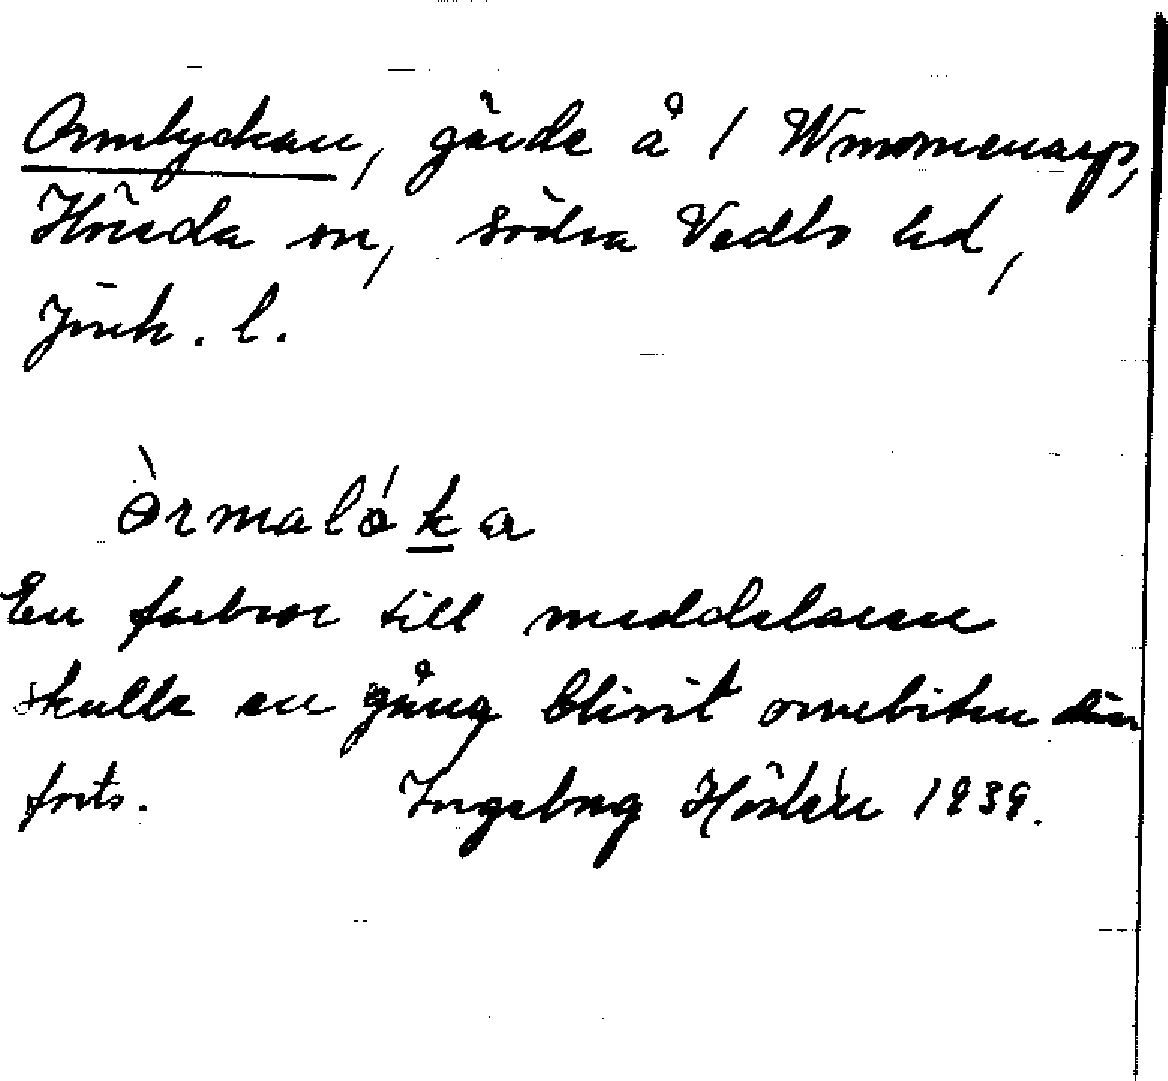 Ormlyckan, gärde å 1 Wmmenarp,
Höreda sn, södra Vedbo hd,
Jönk. l.
òrmaló̱ka
En farbror till meddelaren
skulle en gång blivit ormbiten där
forts. Ingeborg Höstén 1939.